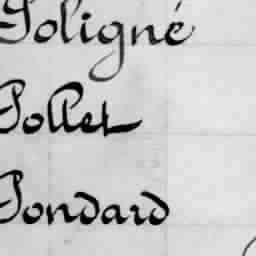 Joligné
Jollet
Jondard